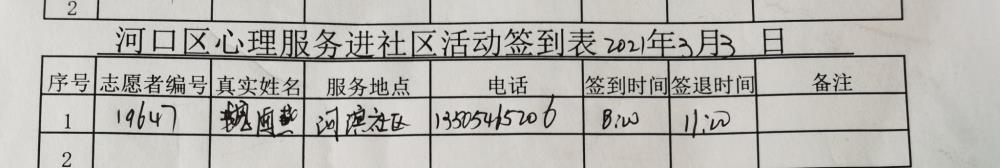 2
河口区心理服务进社区活动签到表 2021年3月3日
序号 志愿者编号 真实姓名 服务地点 电话 签到时间 签退时间 备注
1 19647 河滨社区 13505465206 8:00 11:00
2